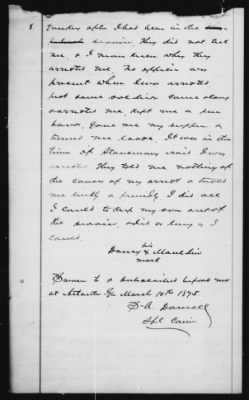 8
after I had been in the
service. They did not tell
me, & I never knew why they
arrested me. No officer was
present when I was arrested
just some soldier came along
& arrested me, kept me a few
hours, gave me my supper &
turned me loose. It was in the
time of Stoneman raid I was
arrested. They told me nothing of
the cause of my arrest & treated
me kindly & friendly. I did all
I could to keep my son out of
the service, & did so long as I
could.
his
Dancy X Mauldin
mark
Sworn to & subscribed before me
at Atlanta Ga March 10th 1875
D. A. Darnell
Spl Com